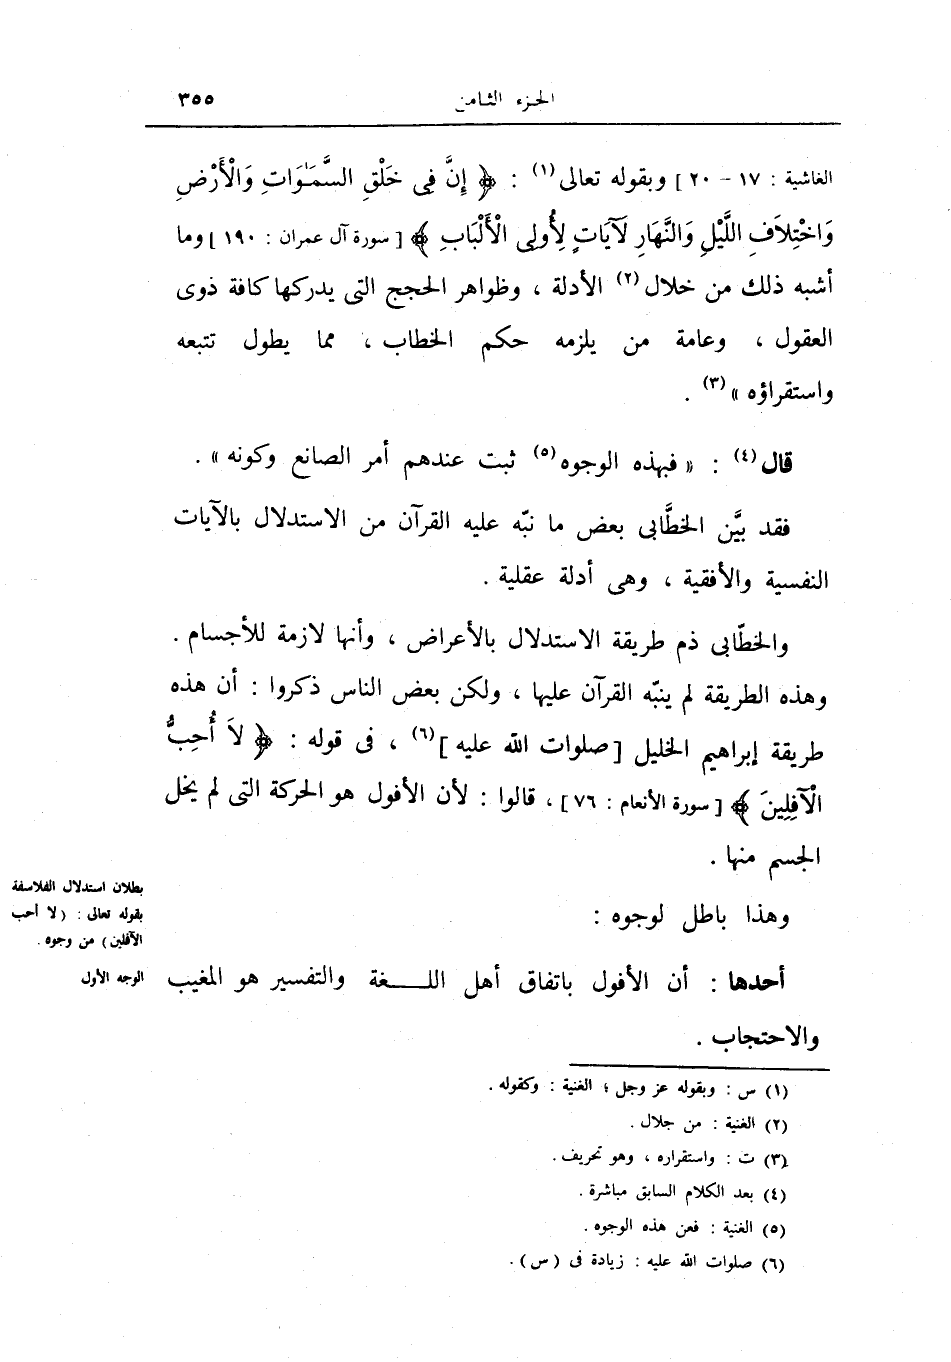 الجزء الثامن ٣٥٥
الغاشية : ١٧ – ٢٠ ] وبقوله تعالى(١) : ﴿ إِنَّ فِى خَلْقِ السَّمَٰوَاتِ وَالْأَرْضِ
وَاخْتِلاَفِ اللَّيْلِ وَالنَّهَارِ لَآيَاتٍ لِأُولِى الْأَلْبَابِ ﴾ [ سورة آل عمران : ١٩٠ ] وما
أشبه ذلك من خلال(٢) الأدلة ، وظواهر الحجج التى يدركها كافة ذوى
العقول ، وعامة من يلزمه حكم الخطاب ، مما يطول تتبعه
واستقراؤه »(٣) .
قال(٤) : « فبهذه الوجوه(٥) ثبت عندهم أمر الصانع وكونه » .
فقد بيَّن الخطَّابى بعض ما نبّه عليه القرآن من الاستدلال بالآيات
النفسية والأفقية ، وهى أدلة عقلية .
والخطّابى ذم طريقة الاستدلال بالأعراض ، وأنها لازمة للأجسام .
وهذه الطريقة لم ينبّه القرآن عليها ، ولكن بعض الناس ذكروا : أن هذه
طريقة إبراهيم الخليل [صلوات الله عليه ](٦) ، فى قوله : ﴿ لاَ أُحِبُّ
الْآفِلِينَ ﴾ [ سورة الأنعام : ٧٦ ] ، قالوا : لأن الأفول هو الحركة التى لم يخل
الجسم منها .
بطلان استدلال الفلاسفة
بقوله تعالى : ( لا أحب
الآفلين ) من وجوه .
وهذا باطل لوجوه :
الوجه الأول
أحدها : أن الأفول باتفاق أهل اللـــــغة والتفسير هو المغيب
والاحتجاب .
(١) س : وبقوله عز وجل ؛ الغنية : وكقوله .
(٢) الغنية : من جلال .
(٣) ت : واستقراره ، وهو تحريف .
(٤) بعد الكلام السابق مباشرة .
(٥) الغنية : فعن هذه الوجوه .
(٦) صلوات الله عليه : زيادة فى ( س ) .